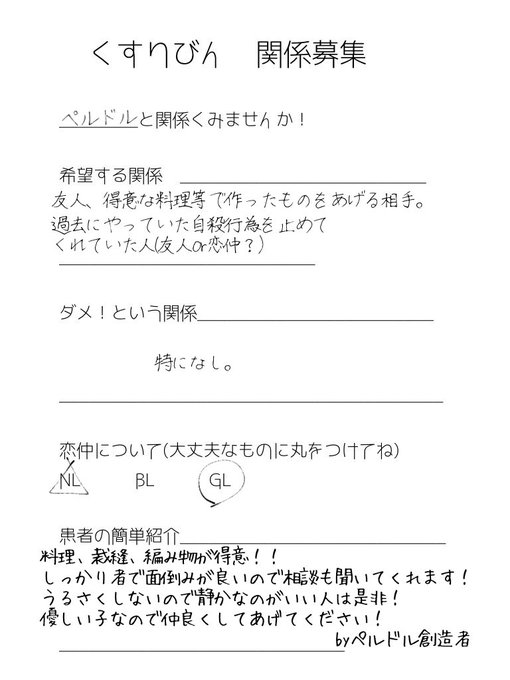 くすりびん　関係募集
ペルドルと関係くみませんか！
希望する関係
友人、得意な料理等で作ったものをあげる相手。
過去にやっていた自殺行為を止めて
くれていた人(友人or恋仲？)
ダメ！という関係
特になし。
恋仲について(大丈夫なものに丸をつけてね)
NL　BL　GL
患者の簡単紹介
料理、裁縫、編み物が得意！！
しっかり者で面倒みが良いので相談も聞いてくれます！
うるさくしないので静かなのがいい人は是非！
優しい子なので仲良くしてあげてください！
byペルドル創造者